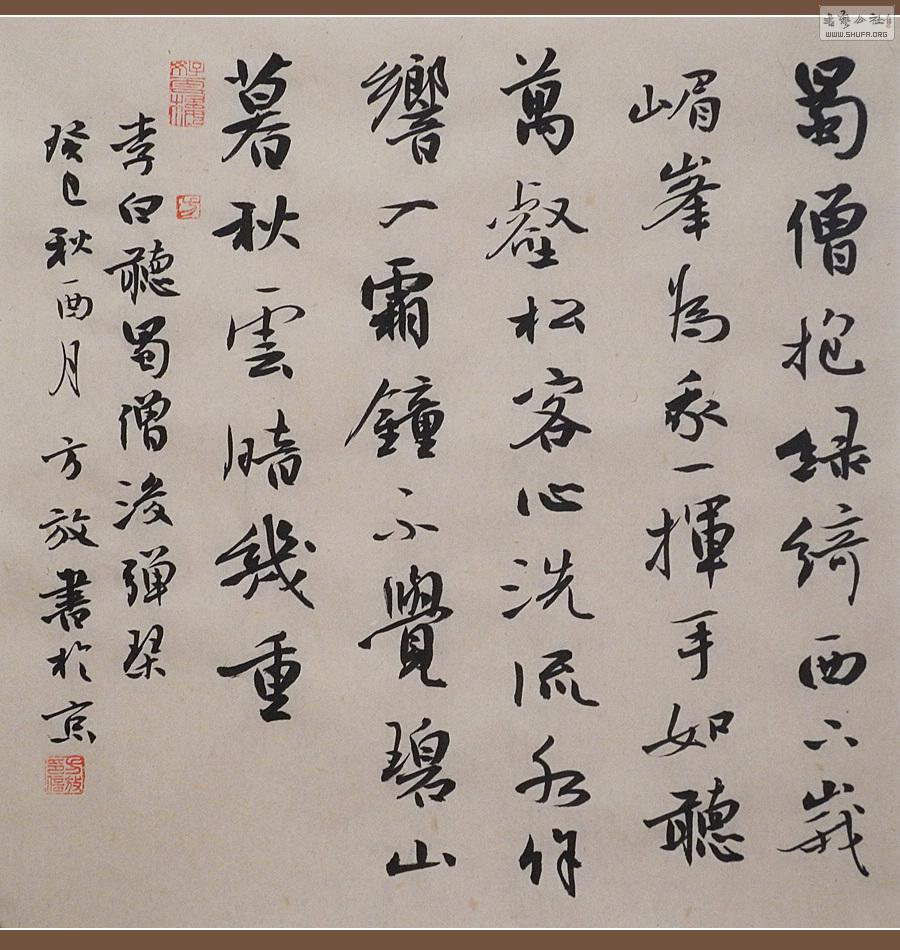 蜀僧抱緑綺西下峩
嵋峯為我一揮手如聽
萬壑松客心洗流水餘
響入霜鐘不覺碧山
暮秋雲暗幾重
李白聽蜀僧浚彈琴
癸巳秋酉月 方放書於京
書藝公社
WWW.SHUFA.ORG